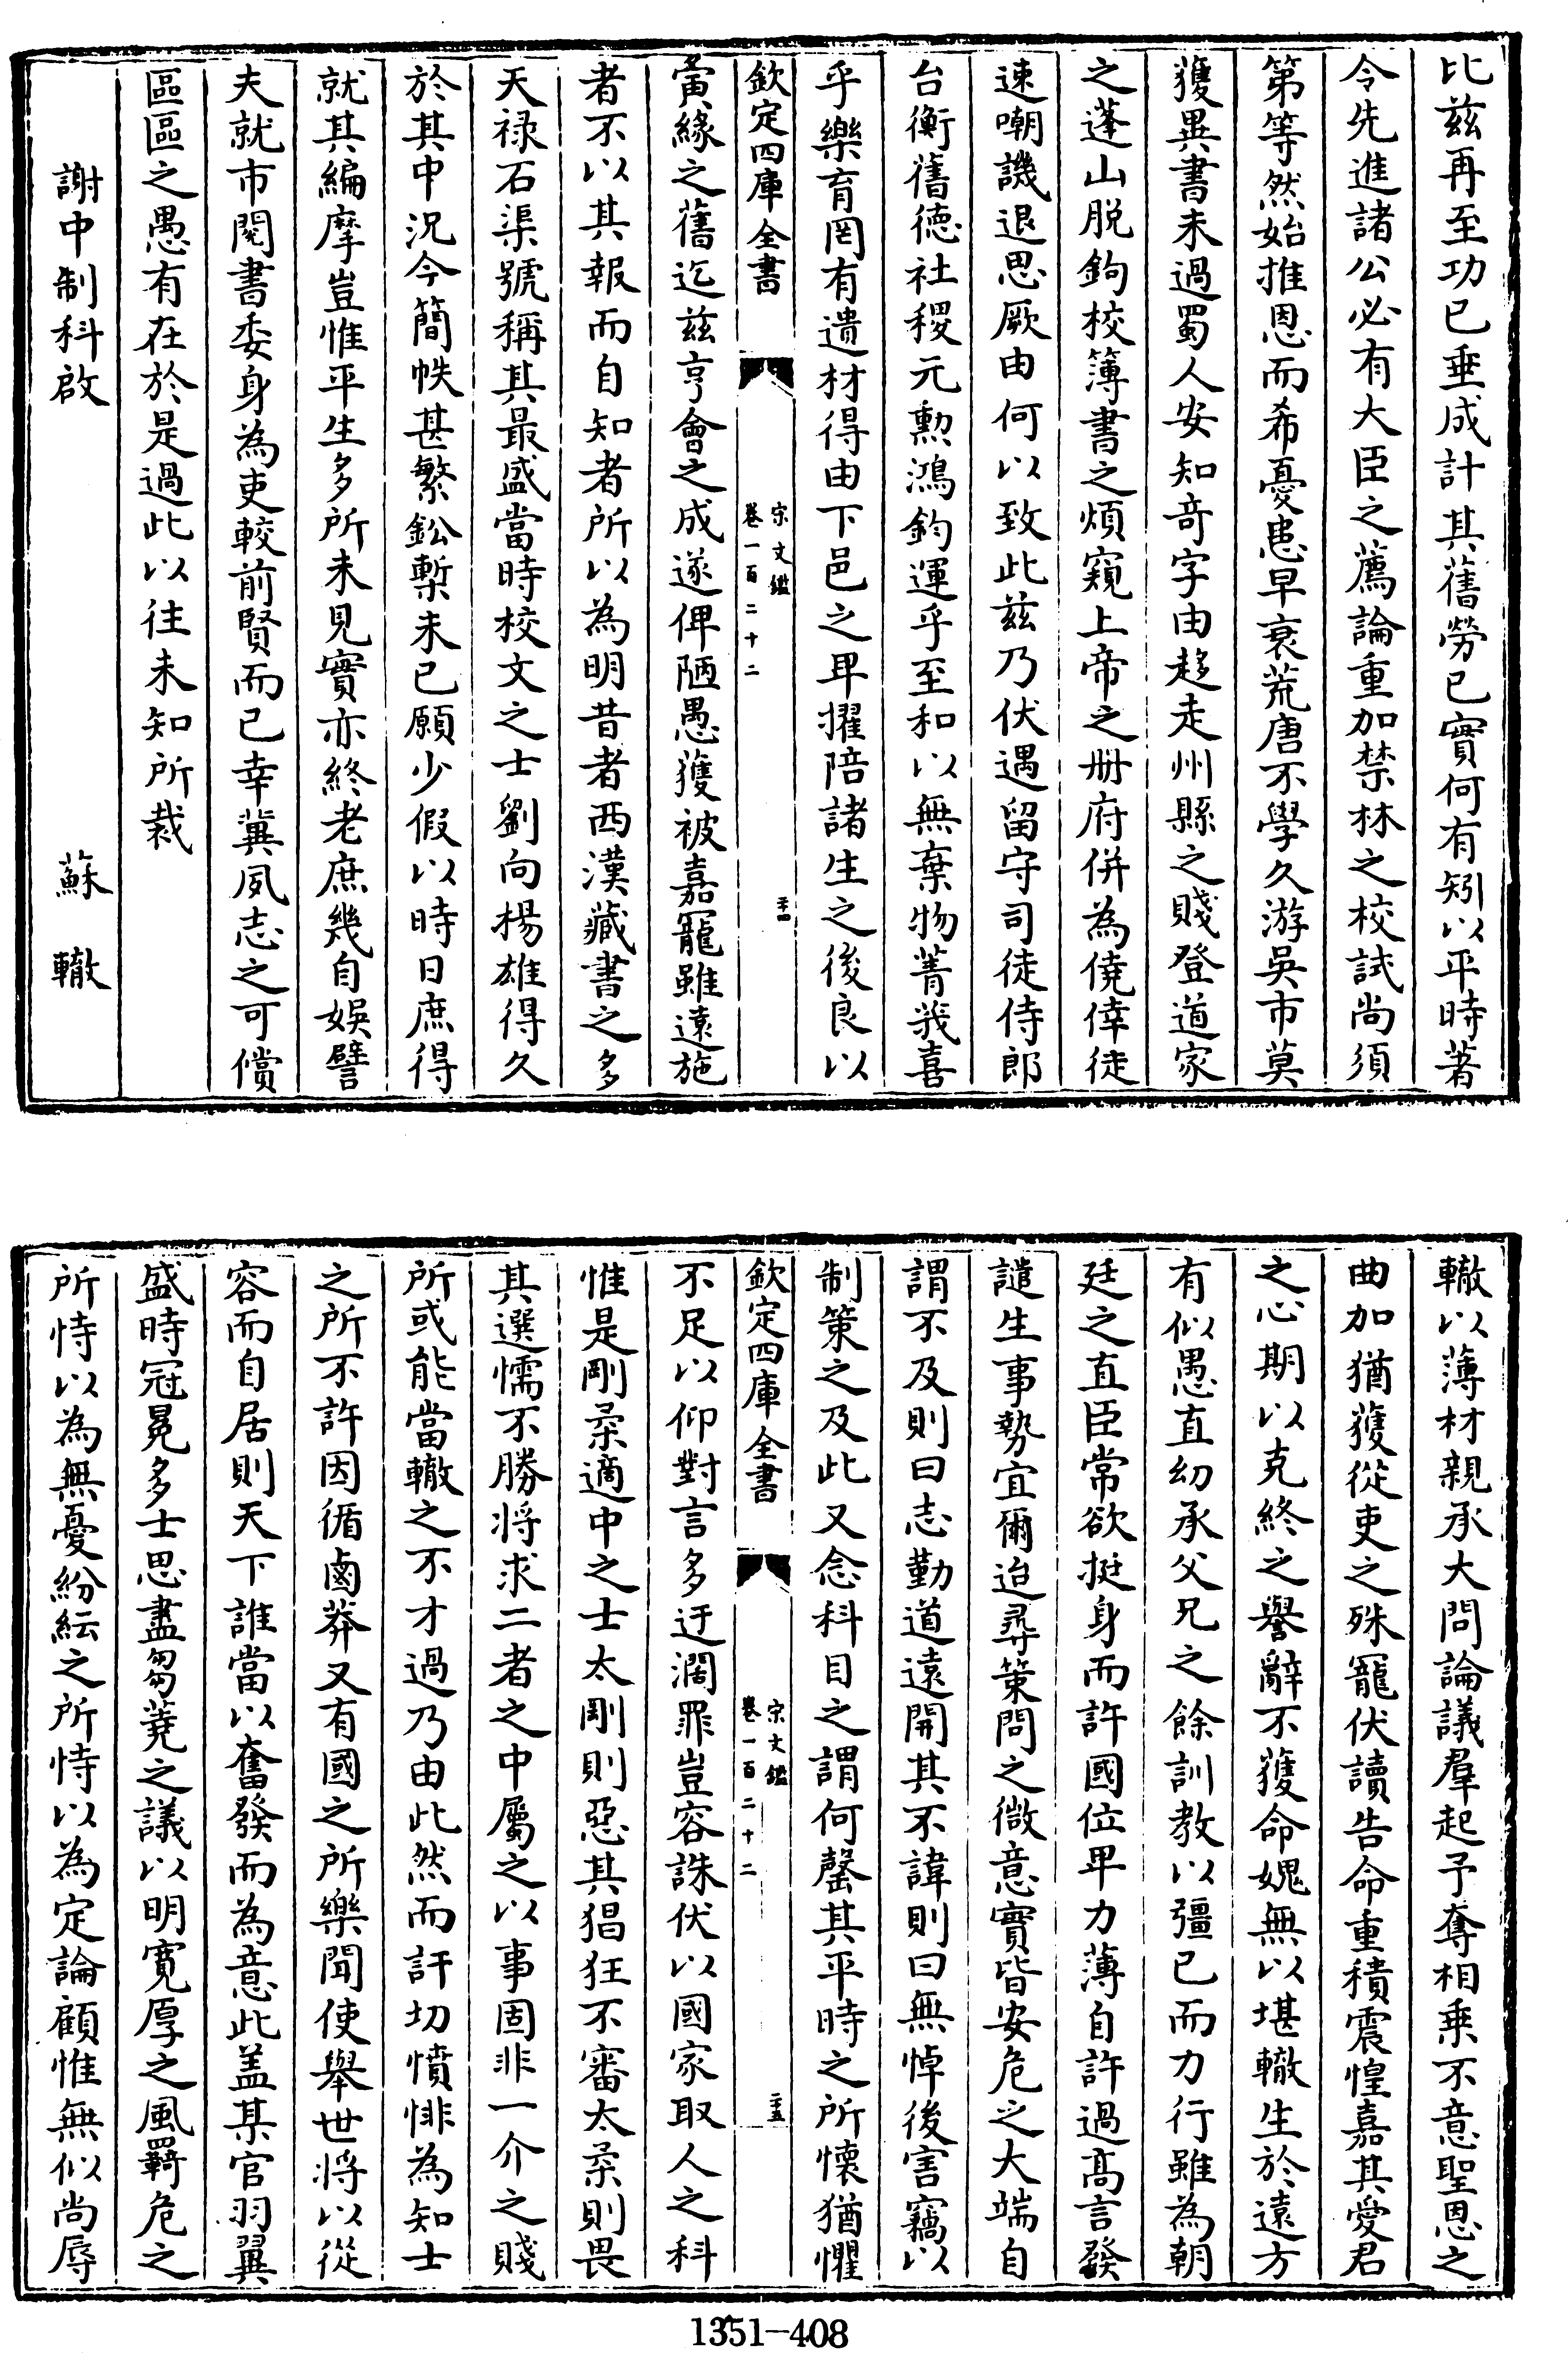 比兹再至功已垂成計其舊勞已實何有矧以平時著
令先進諸公必有大臣之薦論重加禁林之校試尚須
第等然始推恩而希憂患早衰荒唐不學久游吳市莫
獲異書未過蜀人安知竒字由趍走州縣之賤登道家
之蓬山脱鉤校簿書之煩窺上帝之册府併為僥倖徒
速嘲譏退思厥由何以致此兹乃伏遇留守司徒侍郎
台衡舊德社稷元勲鴻鈞運乎至和以無棄物菁莪喜
乎樂育罔有遺材得由下邑之卑擢陪諸生之後良以
欽定四庫全書
宋文鑑
卷一百二十二
二十四
夤緣之舊迄兹亨會之成遂俾陋愚獲被嘉寵雖遠施
者不以其報而自知者所以為明昔者西漢藏書之多
天禄石渠號稱其最盛當時校文之士劉向楊雄得久
於其中況今簡帙甚繁鈆槧未已願少假以時日庶得
就其編摩豈惟平生多所未見實亦終老庶幾自娛譬
夫就市閱書委身為吏較前賢而已幸冀夙志之可償
區區之愚有在於是過此以往未知所裁
謝中制科啟
蘇轍
轍以薄材親承大問論議羣起予奪相乗不意聖恩之
曲加猶獲從吏之殊寵伏讀告命重積震惶嘉其愛君
之心期以克終之譽辭不獲命媿無以堪轍生於遠方
有似愚直幼承父兄之餘訓教以彊已而力行雖為朝
廷之直臣常欲挺身而許國位卑力薄自許過髙言發
譴生事勢宜爾迨尋策問之微意實皆安危之大端自
謂不及則曰志勤道遠開其不諱則曰無悼後害竊以
制策之及此又念科目之謂何罄其平時之所懷猶懼
欽定四庫全書
宋文鑑
卷一百二十二
二十五
不足以仰對言多迂濶罪豈容誅伏以國家取人之科
惟是剛柔適中之士太剛則惡其猖狂不審太柔則畏
其選懦不勝將求二者之中屬之以事固非一介之賤
所或能當轍之不才過乃由此然而訐切憤悱為知士
之所不許因循鹵莽又有國之所樂聞使舉世將以從
容而自居則天下誰當以奮發而為意此盖某官羽翼
盛時冠冕多士思盡芻蕘之議以明寛厚之風羇危之
所恃以為無憂紛紜之所恃以為定論顧惟無似尚辱
1351-408